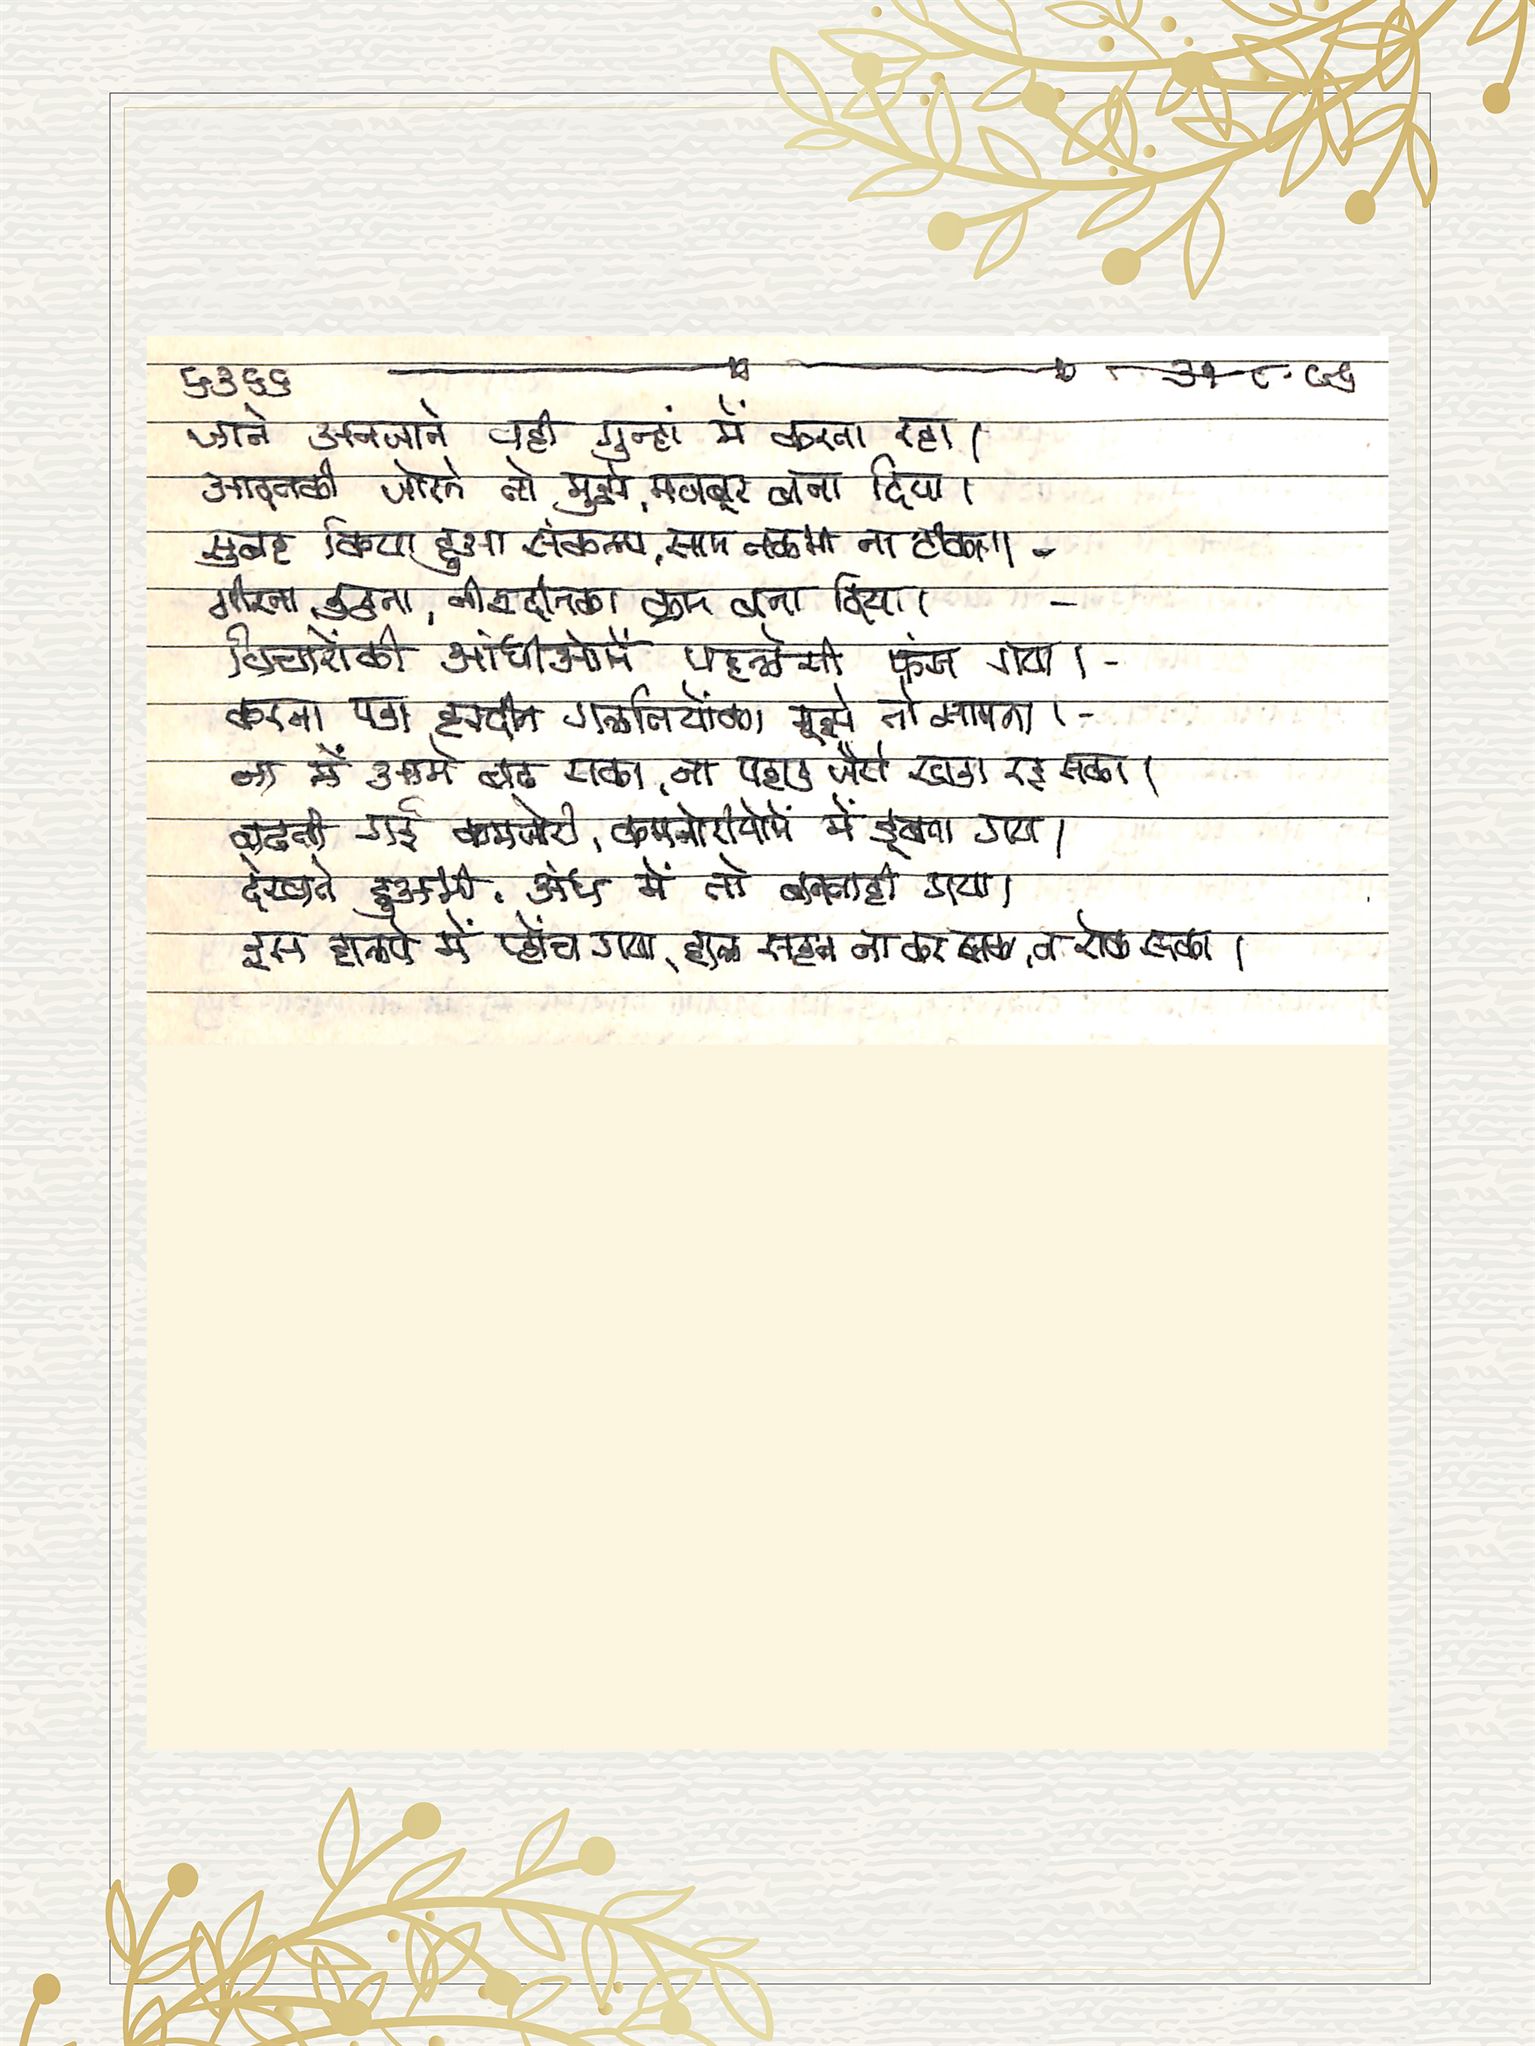 ५३६६ ३१-८-८६
जाने अनजाने वही गुन्हां में करता रहा।
आदतकी जोरने तो मुझे, मजबूर बना दिया।
सुबह किया हुआ संकल्प, साम तकभी ना टीका। -
गीरना, उठना, नीत्यदीनका क्रम बना दिया। -
विचारोंकी आंधीओमें पहलेसी फंस गया। -
करना पडा हरदीन गलतियोंका मुझे तो सामना। -
ना में आगे बढ सका, ना पहाड जैसे खडा रह सका।
बढती गई कमजोरी, कमजोरीयोमें में डूबता गया।
देखते हुआभी, अंध में तो बनताही गया।
इस हालपे में पहोंच गया, हाल सहन ना कर सका, न रोक सका।